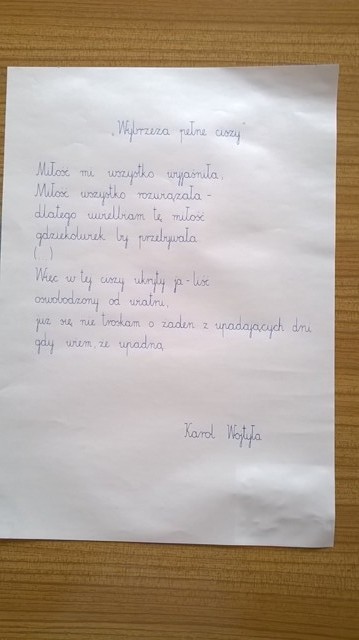 „Wybrzeża pełne ciszy"
Miłość mi wszystko wyjaśniła,
Miłość wszystko rozwiązała -
dlatego uwielbiam tę miłość
gdziekolwiek by przebywała
(...)
Więc w tej ciszy ukryty ja - liść
oswobodzony od wiatru,
już się nie troskam o żaden z upadających dni
gdy wiem, że upadną
Karol Wojtyła